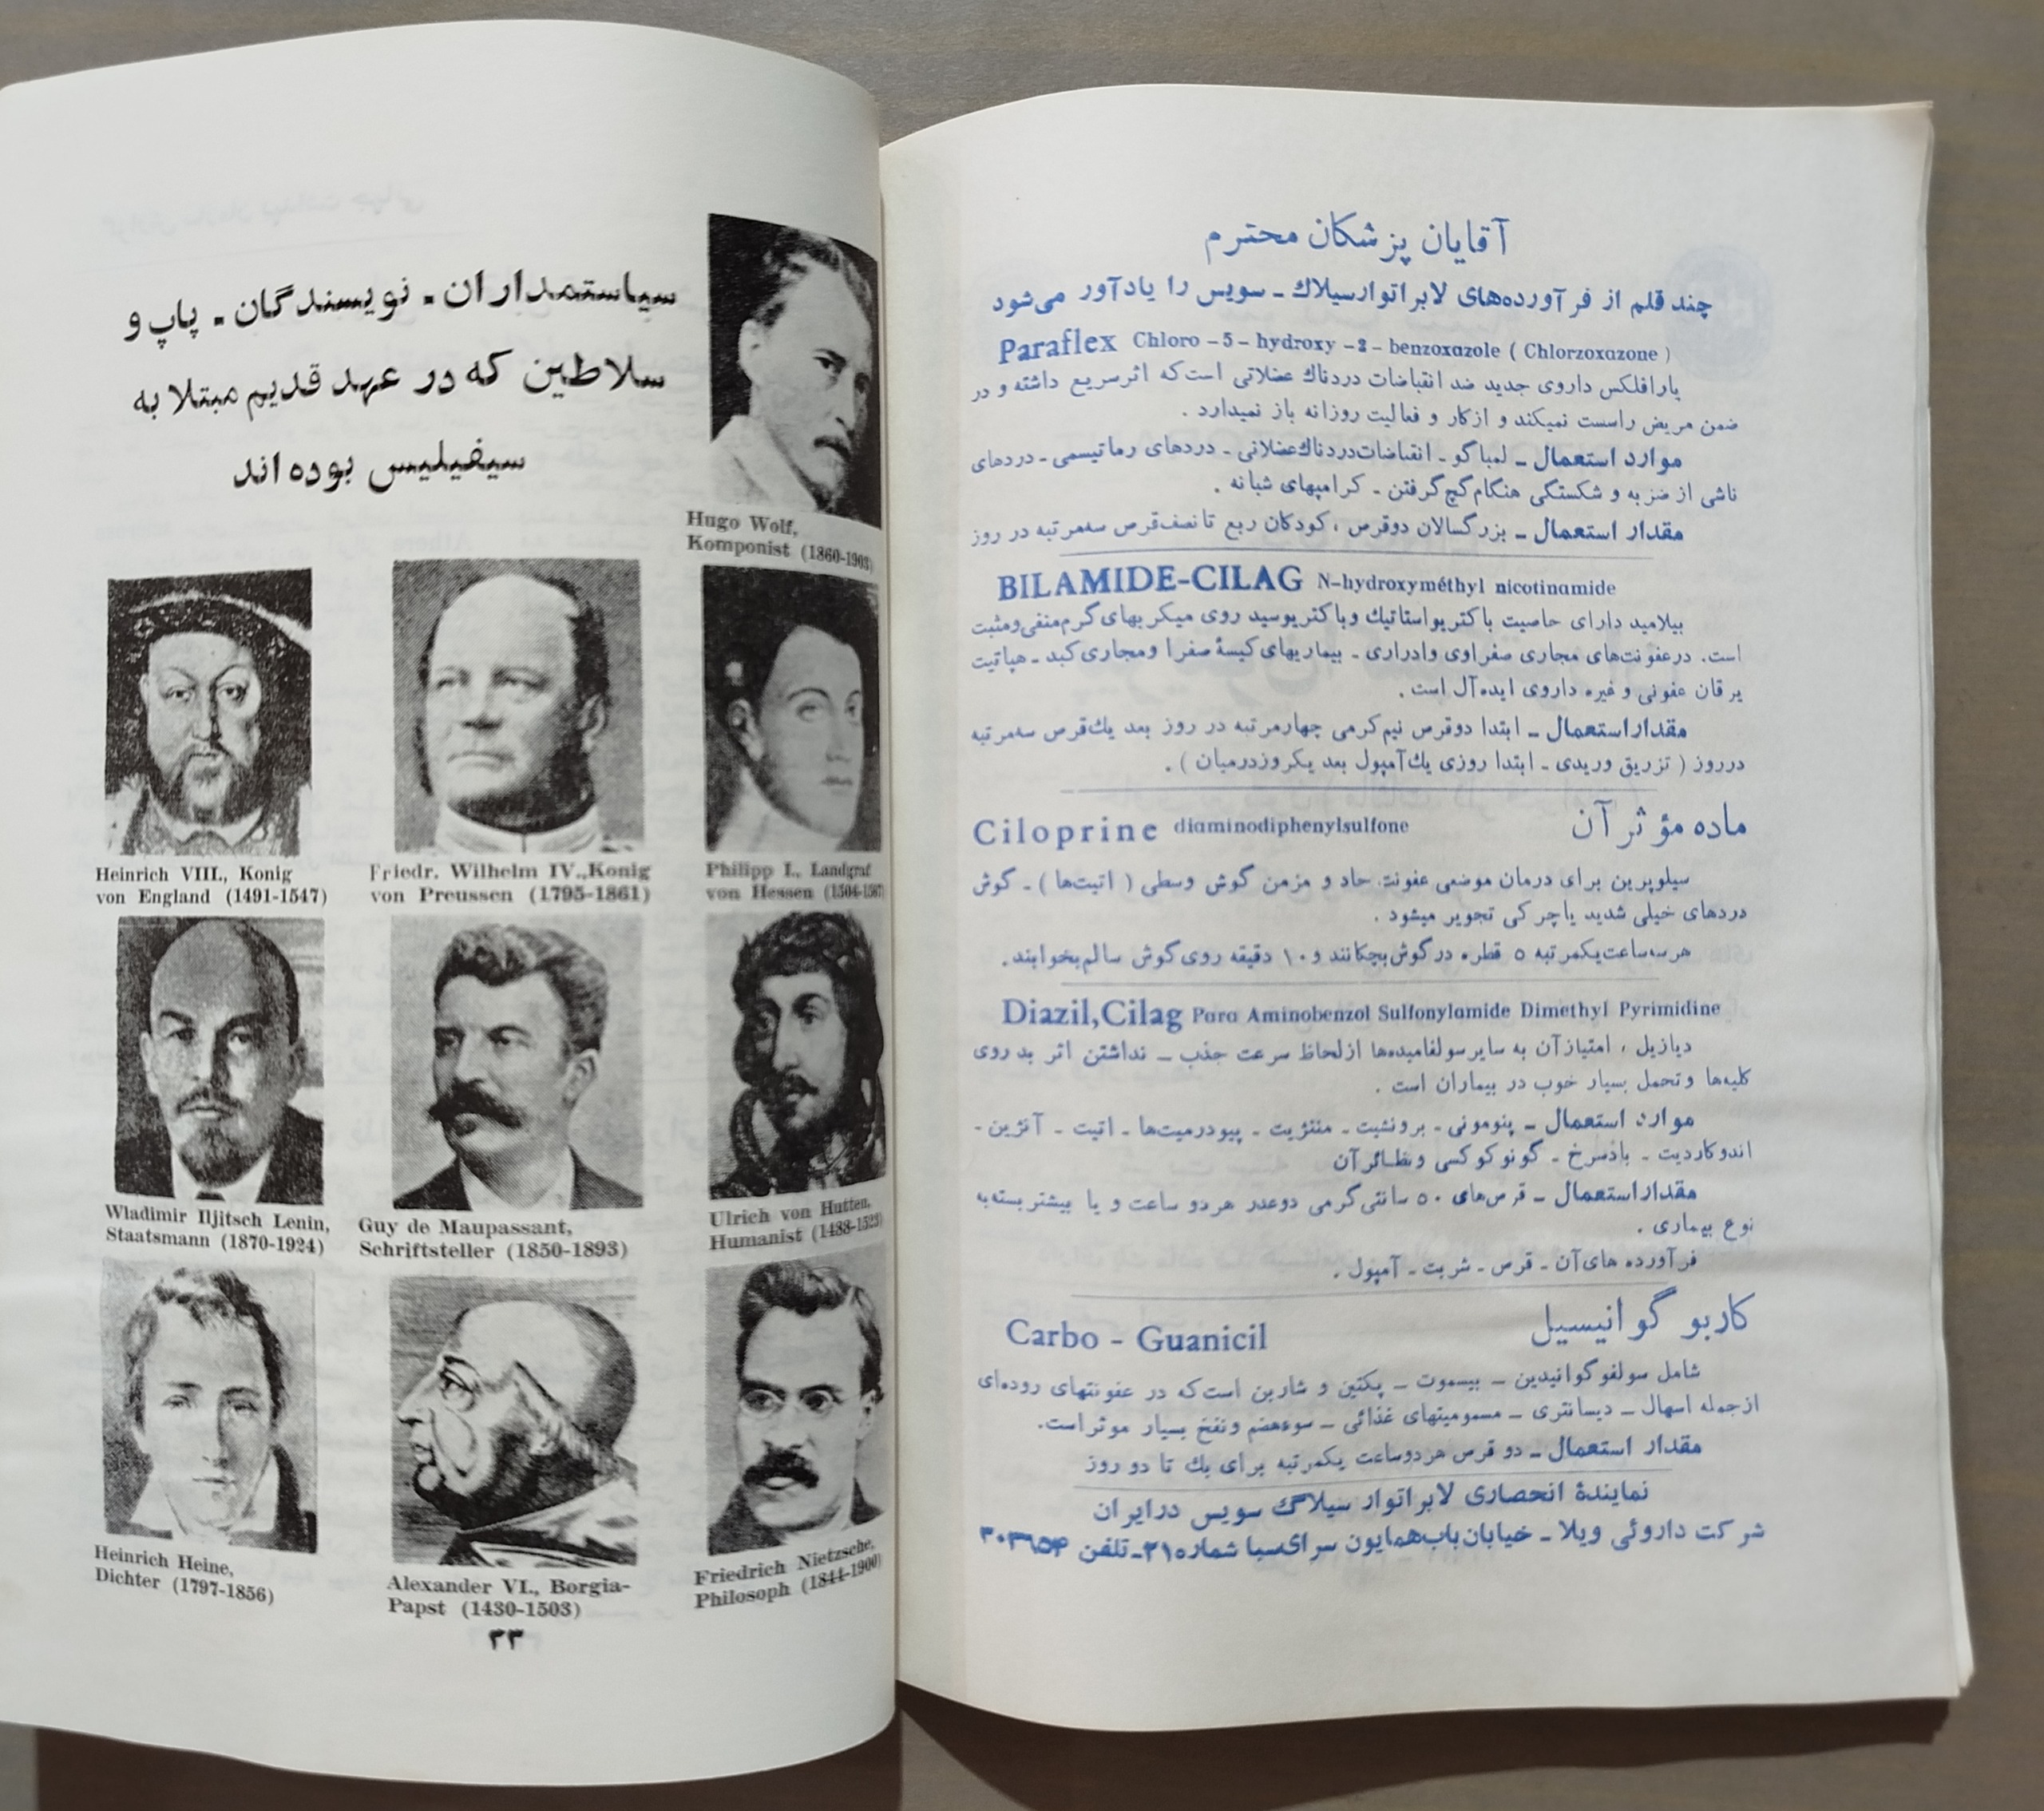 سیاستمداران ـ نویسندگان ـ پاپ و
سلاطین که در عهد قدیم مبتلا به
سیفیلیس بوده اند
Hugo Wolf,
Komponist (1860-1903)
Heinrich VIII., Konig
von England (1491-1547)
Friedr. Wilhelm IV., Konig
von Preussen (1795-1861)
Philipp I., Landgraf
von Hessen (1504-1567)
Wladimir Iljitsch Lenin,
Staatsmann (1870-1924)
Guy de Maupassant,
Schriftsteller (1850-1893)
Ulrich von Hutten,
Humanist (1488-1523)
Heinrich Heine,
Dichter (1797-1856)
Alexander VI., Borgia-
Papst (1430-1503)
Friedrich Nietzsche,
Philosoph (1844-1900)
۳۳
آقایان پزشکان محترم
چند قلم از فرآورده‌های لابراتوار سیلاك ـ سویس را یادآور می‌شود
Paraflex Chloro - 5 - hydroxy - 2 - benzoxazole ( Chlorzoxazone )
پارافلکس داروی جدید ضد انقباضات دردناك عضلاتی است که اثر سریع داشته و در
ضمن مریض راسست نمیکند و ازکار و فعالیت روزانه باز نمیدارد .
موارد استعمال ـ لمباگو ـ انقباضات دردناك عضلانی ـ دردهای رماتیسمی ـ دردهای
ناشی از ضربه و شکستگی هنگام گچ گرفتن ـ کرامپهای شبانه .
مقدار استعمال ـ بزرگسالان دوقرص ، کودکان ربع تا نصف قرص سه مرتبه در روز
BILAMIDE-CILAG N-hydroxyméthyl nicotinamide
بیلامید دارای خاصیت باکتریواستاتیك وباکتریوسید روی میکربهای گرم منفی و مثبت
است. درعفونت‌های مجاری صفراوی وادراری ـ بیماریهای کیسهٔ صفرا ومجاری کبد ـ هپاتیت
یرقان عفونی و غیره داروی ایده‌آل است .
مقدار استعمال ـ ابتدا دوقرص نیم گرمی چهارمرتبه در روز بعد یك قرص سه مرتبه
درروز ( تزریق وریدی ـ ابتدا روزی یك آمپول بعد یکروزدرمیان ) .
Ciloprine diaminodiphenylsulfone ماده مؤثر آن
سیلوپرین برای درمان موضعی عفونت حاد و مزمن گوش وسطی ( اتیت‌ها ) ـ گوش
دردهای خیلی شدید یاچرکی تجویر میشود .
هر سه ساعت یکمرتبه ۵ قطره در گوش بچکانند و ۱۰ دقیقه روی گوش سالم بخوابند .
Diazil,Cilag Para Aminobenzol Sulfonylamide Dimethyl Pyrimidine
دیازیل ، امتیازآن به سایر سولفامیدها ازلحاظ سرعت جذب ـ نداشتن اثر بد روی
کلیه‌ها وتحمل بسیار خوب در بیماران است .
موارد استعمال ـ پنومونی ـ برونشیت ـ مننژیت ـ پیودرمیت‌ها ـ اتیت ـ آنژین ـ
اندوکاردیت ـ بادسرخ ـ گونوکوکسی و نظائر آن
مقدار استعمال ـ قرص‌های ۵۰ سانتی گرمی دوعدر هردو ساعت و یا بیشتر بسته به
نوع بیماری .
فرآورده های آن ـ قرص ـ شربت ـ آمپول .
Carbo - Guanicil کاربو گوانیسیل
شامل سولفوگوانیدین ـ بیسموت ـ پکتین و شاربن است که در عفونتهای روده‌ای
ازجمله اسهال ـ دیسانتری ـ مسمومیتهای غذائی ـ سوءهضم ونفخ بسیار موثراست.
مقدار استعمال ـ دو قرص هردوساعت یکمرتبه برای یك تا دو روز
نمایندهٔ انحصاری لابراتوار سیلاگ سویس درایران
شرکت داروئی ویلا ـ خیابان باب همایون سرای سبا شماره ۲۱ـ تلفن ۳۰۳۶۵۴